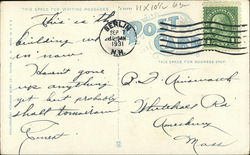 THIS SPACE FOR WRITING MESSAGES
This is the
building we are
in now.
Haven't gone
up anything
yet but probably
shall tomorrow
Ernest
11 X
BERLIN
SEP 7
1931
N.H.
POST
THIS SPACE FOR ADDRESS ONLY
Whitehall Rd
Amesbury
Mass.